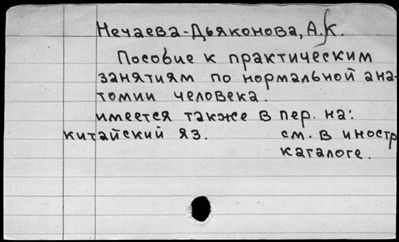 Нечаева-Дьяконова, А.К.
Пособие к практическим
занятиям по нормальной ана-
томии человека.
имеется также в пер. на:
китайский яз. см. в иностр
каталоге.